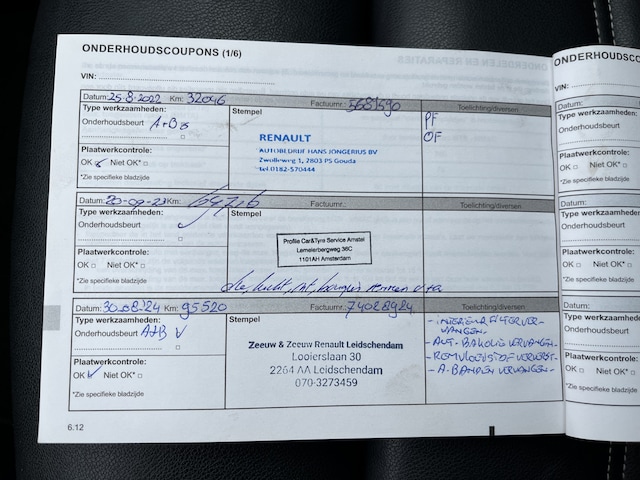 ONDERHOUDSCOUPONS (1/6)
VIN:
Datum: 25-8-2022 Km: 32046 Factuurnr.: 5681590 Toelichting/diversen
Type werkzaamheden:
Onderhoudsbeurt A+B
Stempel
PF
OF
RENAULT
AUTOBEDRIJF HANS JONGERIUS BV
Zwolleweg 1, 2803 PS Gouda
tel.0182-570444
Plaatwerkcontrole:
OK Niet OK*
*Zie specifieke bladzijde
Datum: 20-09-23 Km: Factuurnr.: Toelichting/diversen
Type werkzaamheden:
Onderhoudsbeurt
Stempel
Profile Car&Tyre Service Amstel
Lemelerbergweg 36C
1101AH Amsterdam
Plaatwerkcontrole:
OK Niet OK*
*Zie specifieke bladzijde
olie, lucht, int,
Datum: 30-08-24 Km: 95520 Factuurnr.: 74028924 Toelichting/diversen
Type werkzaamheden:
Onderhoudsbeurt A+B V
Stempel
Zeeuw & Zeeuw Renault Leidschendam
Looierslaan 30
2264 AA Leidschendam
070-3273459
- INTERIEURFILTER VER-
VANGEN-
- REMVLOEISTOF VERVERST-
- A. BANDEN VERVANGEN-
Plaatwerkcontrole:
OK Niet OK*
*Zie specifieke bladzijde
6.12
ONDERHOUDSCO
Datum:
Type werkzaamheden:
Onderhoudsbeurt
Plaatwerkcontrole:
OK Niet OK*
*Zie specifieke bladzijde
Datum:
Type werkzaamheden:
Onderhoudsbeurt
Plaatwerkcontrole:
OK Niet OK*
*Zie specifieke bladzijde
Datum:
Type werkzaamheden:
Onderhoudsbeurt
Plaatwerkcontrole:
OK Niet OK*
*Zie specifieke bladzijde